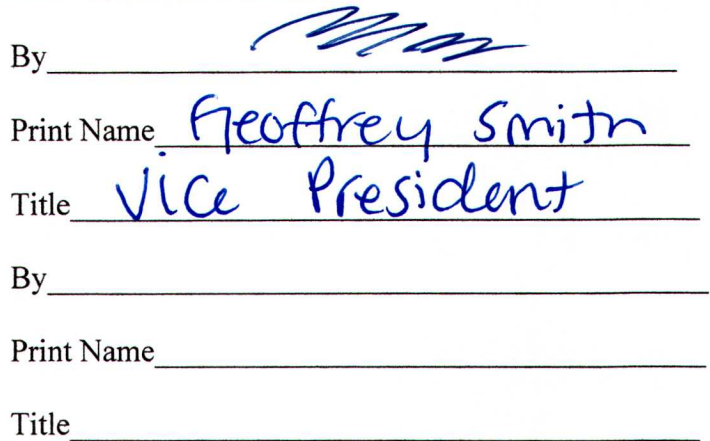 By
Print Name Geoffrey Smith
Title Vice President
By
Print Name
Title